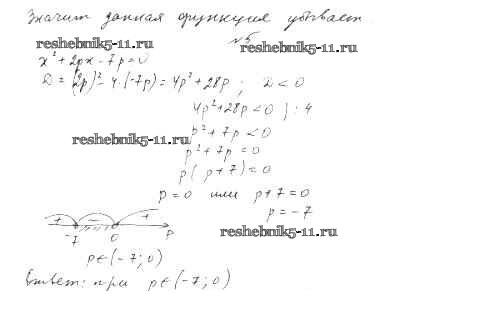 Значит данная функция убывает.
reshebnik5-11.ru
№5
reshebnik5-11.ru
x² + 2px - 7p = 0
D = (2p)² - 4·(-7p) = 4p² + 28p ; D < 0
4p² + 28p < 0 } : 4
reshebnik5-11.ru
p² + 7p < 0
p² + 7p = 0
p( p + 7) = 0
p = 0 или p + 7 = 0
p = -7
+ - +
-7 0 p
reshebnik5-11.ru
p ∈ (-7; 0)
Ответ: при p ∈ (-7; 0)